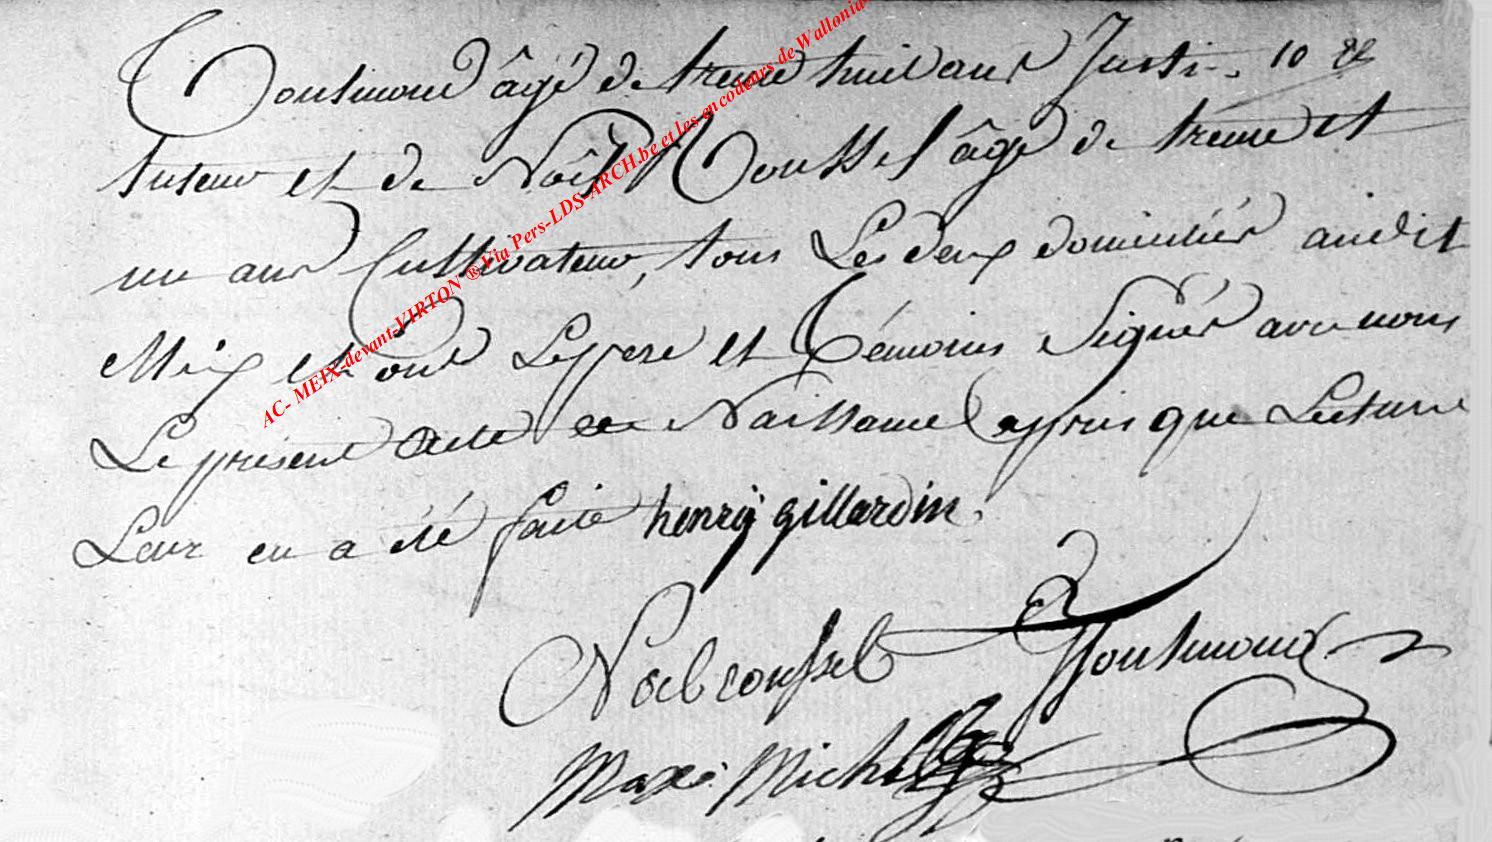 Toutmond âgé de trente huit ans Justi- 10 8
tuteur et de Noël Roussel âgé de trente et
un ans Cultivateur, tous Les deux domiciliés audit
Meix et ont Le pere et Témoins Signés avec nous
Le présent acte de Naissance après que Lecture
Leur en a été faite henry gillardin.
Noel roussel Houtmond
Maxe Michel
AC- MEIX-devant-VIRTON ® Via Pers-LDS-ARCH.be et les encodeurs de Wallonia